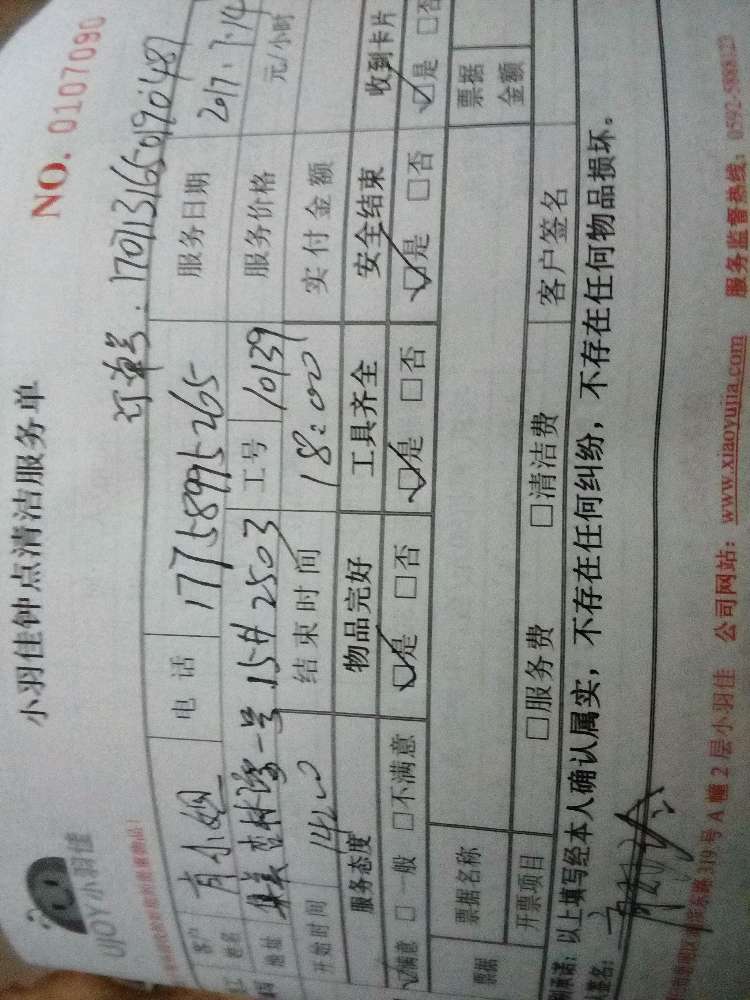 UJOY小羽佳
小羽佳钟点清洁服务单
NO. 0107090
订单号: 170713165019048
客户姓名 肖小姐 电话 17758995265 服务日期 2017.7.14
地址 集美杏林湾一号 15# 2503 工号 10139 服务价格 元/小时
开始时间 14:00 结束时间 18:00 实付金额
服务态度 物品完好 工具齐全 安全结束 收到卡片
☑满意 □一般 □不满意 ☑是 □否 ☑是 □否 ☑是 □否 ☑是 □否
票据 票据名称 票据金额
开票项目 □服务费 □清洁费 客户签名
承诺:以上填写经本人确认属实,不存在任何纠纷,不存在任何物品损坏。
签名:
路319号A幢2层小羽佳 公司网站:www.xiaoyujia.com 服务监督热线:0592-5888123